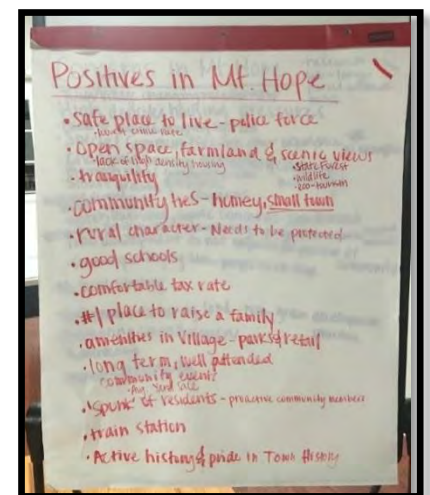 Positives in Mt. Hope
• safe place to live - police force
• lower crime rate
• open space, farmland & scenic views
• lack of high density housing
• State Forest
• wildlife
• eco-tourism
• tranquility
• community ties - homey, small town
• rural character - Needs to be protected
• good schools
• comfortable tax rate
• #1 place to raise a family
• amenities in Village - parks & retail
• long term, well attended
community events
• Yard Sale
• "Spunk" of residents - proactive community members
• train station
• Active history & pride in Town History